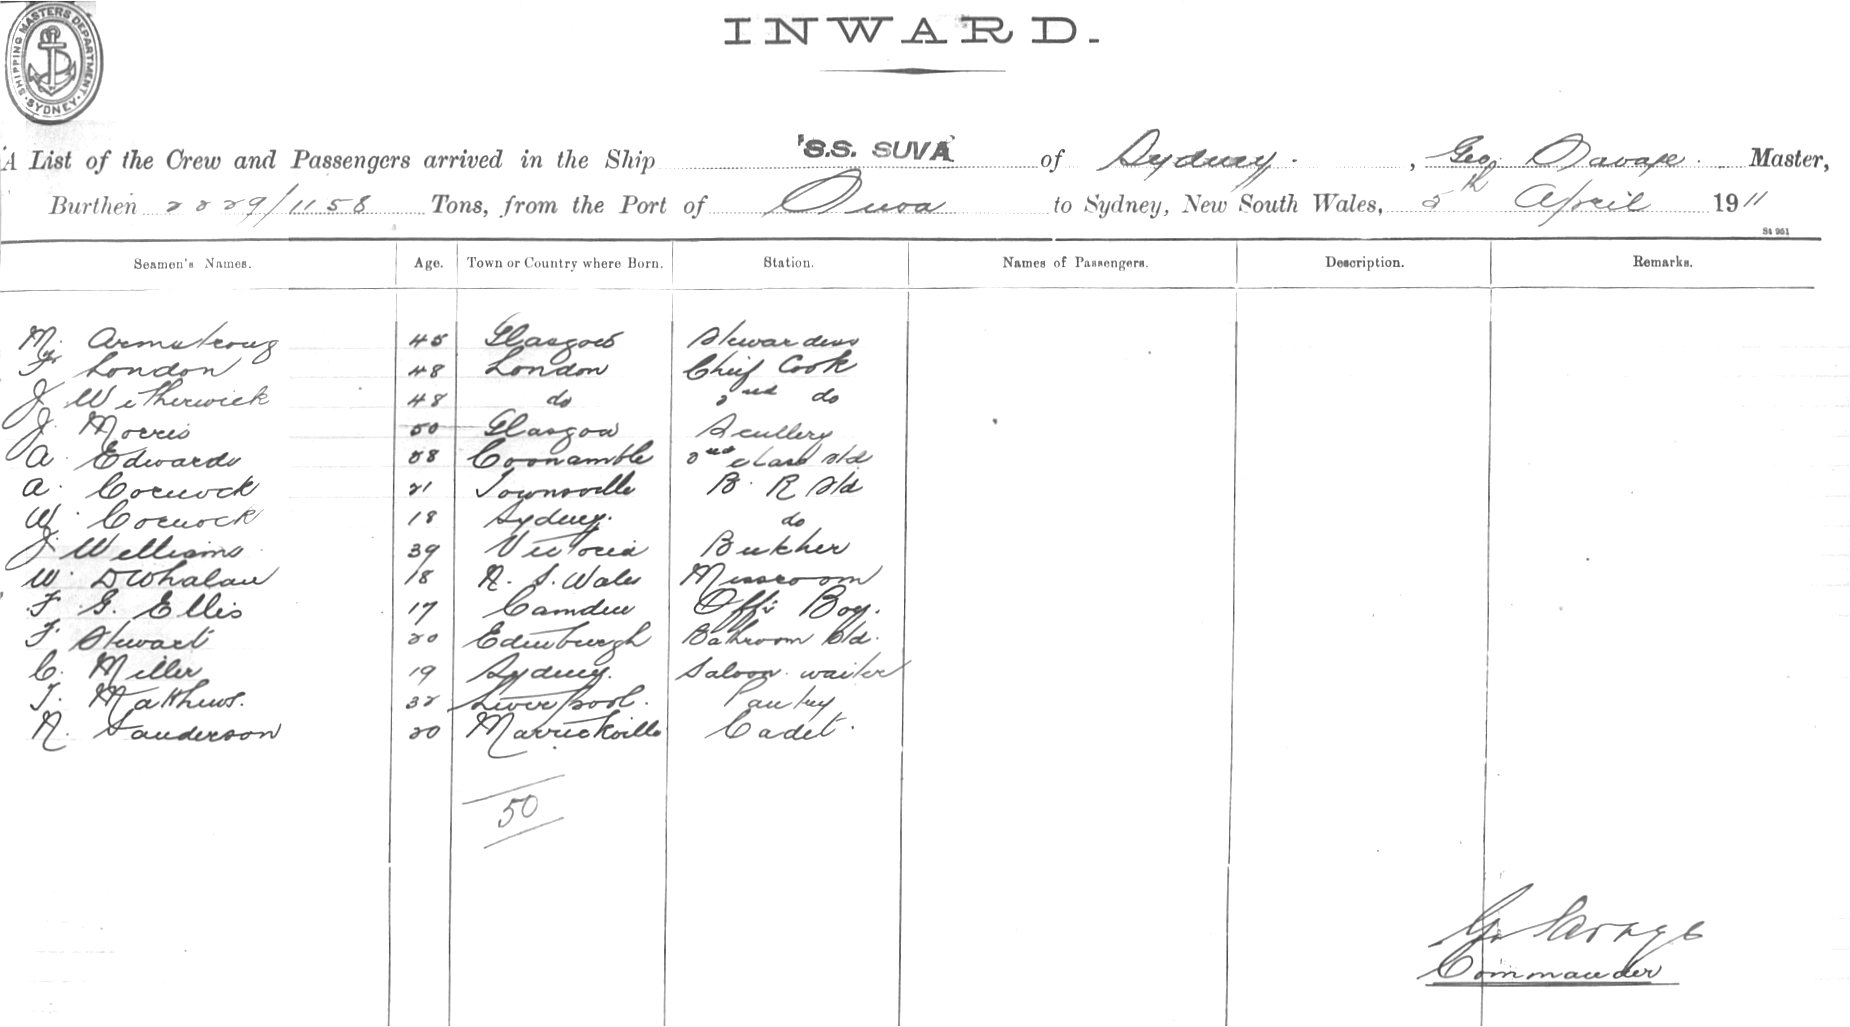 SHIPPING MASTERS DEPARTMENT. SYDNEY.
INWARD.
A List of the Crew and Passengers arrived in the Ship S.S. SUVA of Sydney. , Geo. Savage. Master,
Burthen 2229/1158 Tons, from the Port of Suva to Sydney, New South Wales, 5th April 1911
St 951
Seamen's Names. Age. Town or Country where Born. Station. Names of Passengers. Description. Remarks.
M. Armstrong 45 Glasgow Stewardess
London 48 London Chief Cook
J. Witherwick 48 do 2nd do
J. Morris 50 Glasgow Scullery
A. Edwards 58 Coonamble 2nd class Std
A. Cornock 21 Townsville B. R Std
W. Cornock 18 Sydney. do
J. Williams 39 Victoria Butcher
W. Whalan 18 N. S. Wales Messroom
F. G. Ellis 17 Camden Boy.
F. Stewart 20 Edinburgh Bathroom Std.
C. Miller 19 Sydney. Saloon waiter
T. Matthews. 32 Liverpool. Pantry
N. Sanderson 20 Marrickville Cadet.
50
Geo Savage
Commander